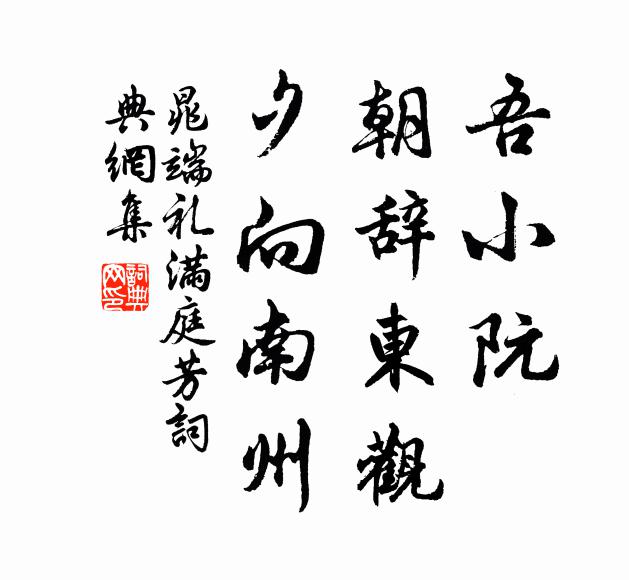 吾小阮
朝辞東觀
夕向南州
晁端礼满庭芳詞
典網集
詞典网印